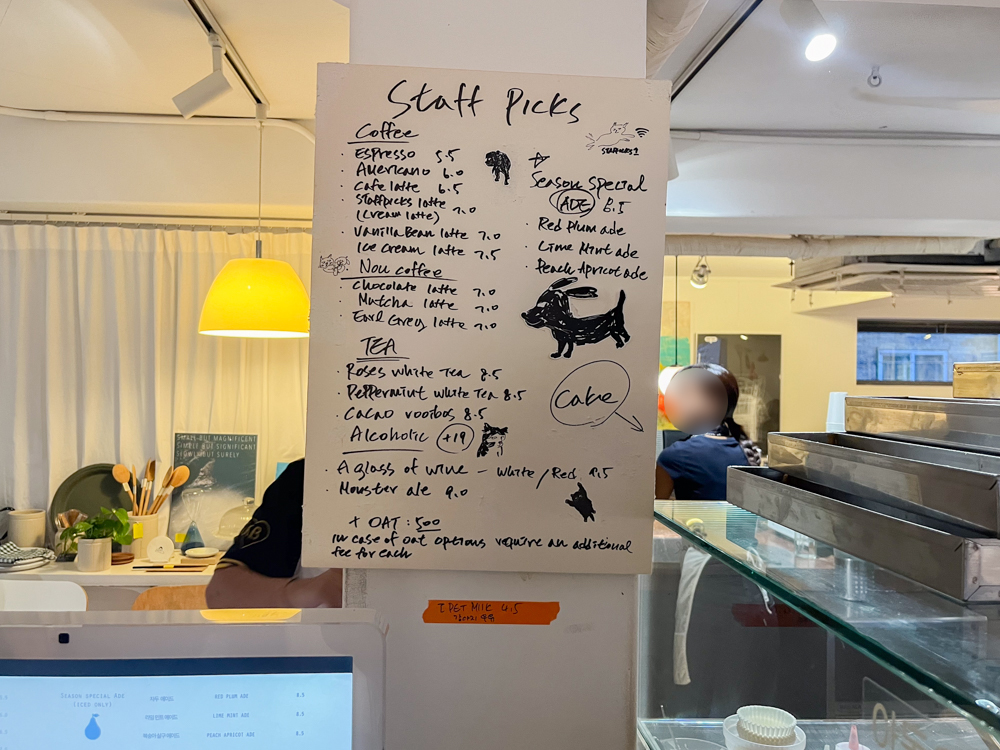 Staff Picks
Coffee
· Espresso 5.5
· Americano 6.0
· Cafe latte 6.5
· Staffpicks latte
(Cream latte) 7.0
· Vanilla Bean latte 7.0
· Ice cream latte 7.5
Non coffee
· Chocolate latte 7.0
· Matcha latte 7.0
· Earl Grey latte 7.0
TEA
· Roses white Tea 8.5
· Peppermint white Tea 8.5
· Cacao rooibos 8.5
Alcoholic +19
· A glass of wine – white / Red 9.5
· Monster ale 9.0
+ OAT : 500
in case of oat options require an additional
fee for each
STAFFPICKS
Season special
ADE 8.5
· Red Plum ade
· Lime Mint ade
· Peach Apricot ade
Cake
I PET MILK 4.5
SMALL BUT MAGNIFICENT
SIMPLE BUT SIGNIFICANT
SLOWLY BUT SURELY
SEASON SPECIAL ADE
(ICED ONLY)
RED PLUM ADE 8.5
LIME MINT ADE 8.5
PEACH APRICOT ADE 8.5